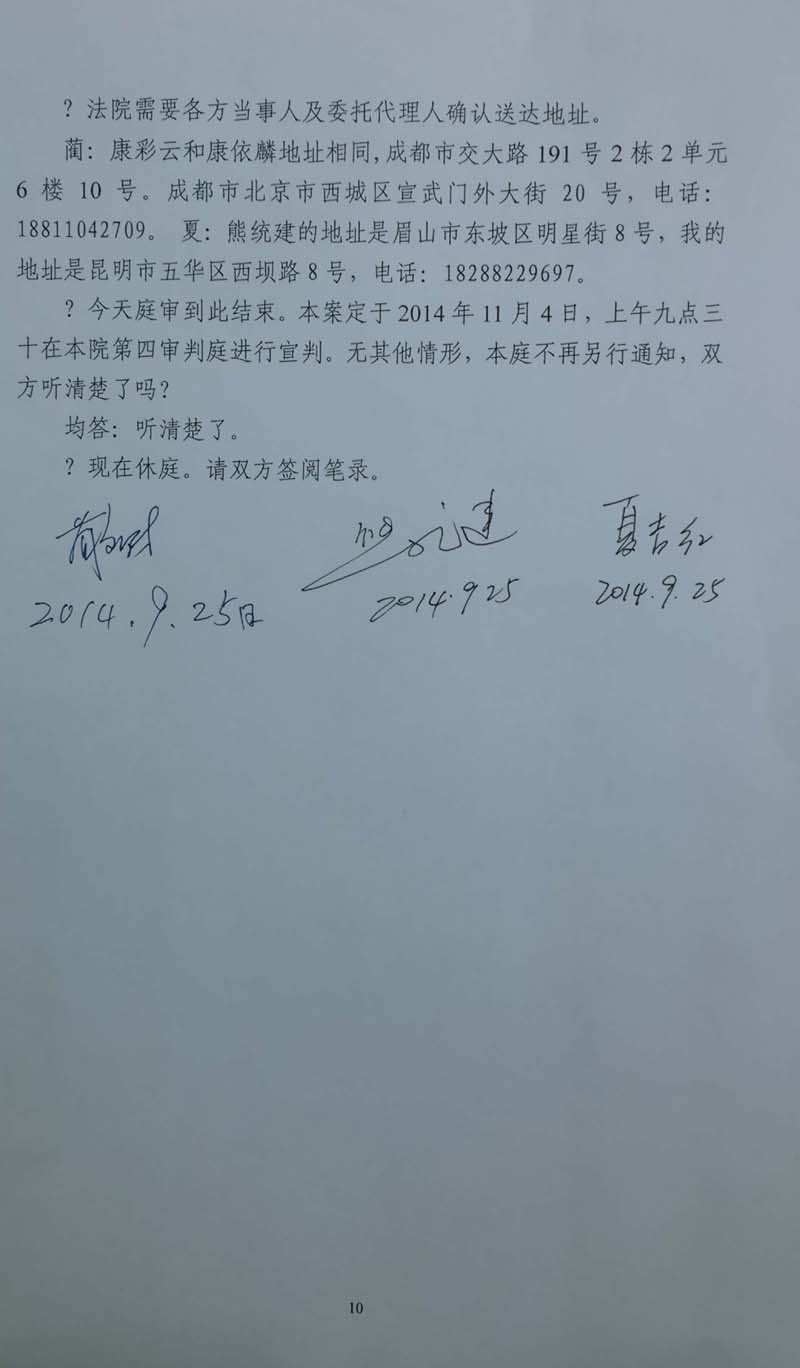 ？法院需要各方当事人及委托代理人确认送达地址。
蔺：康彩云和康依麟地址相同,成都市交大路 191 号 2 栋 2 单元
6 楼 10 号。成都市北京市西城区宣武门外大街 20 号，电话：
18811042709。 夏：熊统建的地址是眉山市东坡区明星街 8 号，我的
地址是昆明市五华区西坝路 8 号，电话：18288229697。
？今天庭审到此结束。本案定于 2014 年 11 月 4 日，上午九点三
十在本院第四审判庭进行宣判。无其他情形，本庭不再另行通知，双
方听清楚了吗？
均答：听清楚了。
？现在休庭。请双方签阅笔录。
建 夏吉红
2014.9.25日 2014.9 25 2014.9.25
10